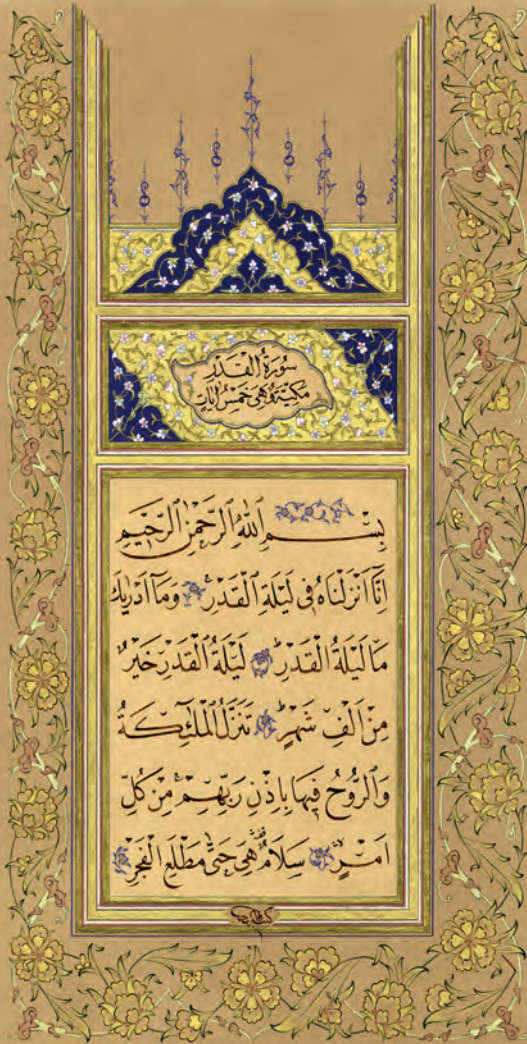 سُورَةُ الْقَدْرِ
مَكِّيَّةٌ وَهِيَ خَمْسُ اٰيَاتٍ
بِسْــمِ اللّٰهِ الرَّحْمٰنِ الرَّحٖيمِ
اِنَّٓا اَنْزَلْنَاهُ فٖى لَيْلَةِ الْقَدْرِۚ وَمَٓا اَدْرٰيكَ
مَا لَيْلَةُ الْقَدْرِؕ لَيْلَةُ الْقَدْرِ خَيْرٌ
مِنْ اَلْفِ شَهْرٍؕ تَنَزَّلُ الْمَلٰٓئِكَةُ
وَالرُّوحُ فٖيهَا بِاِذْنِ رَبِّهِمْۚ مِنْ كُلِّ
اَمْرٍۙ سَلَامٌ هِىَ حَتّٰى مَطْلَعِ الْفَجْرِ